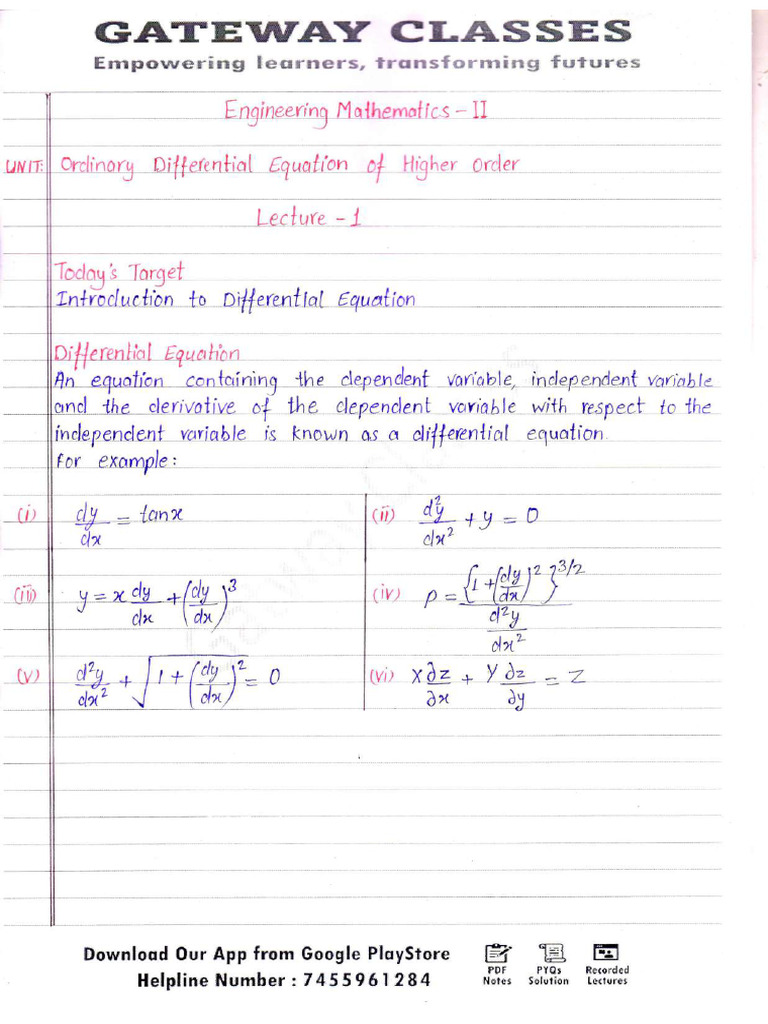 GATEWAY CLASSES
Empowering learners, transforming futures
Engineering Mathematics - II
UNIT: Ordinary Differential Equation of Higher Order
Lecture - 1
Today's Target
Introduction to Differential Equation
Differential Equation
An equation containing the dependent variable, independent variable
and the derivative of the dependent variable with respect to the
independent variable is known as a differential equation.
For example:
(i) dy/dx = tanx (ii) d²y/dx² + y = 0
(iii) y = x dy/dx + (dy/dx)³ (iv) ρ = {1 + (dy/dx)²}^3/2 / d²y/dx²
(v) d²y/dx² + √(1 + (dy/dx)²) = 0 (vi) x ∂z/∂x + y ∂z/∂y = z
Download Our App from Google PlayStore
Helpline Number : 7455961284
PDF Notes
PYQs Solution
Recorded Lectures